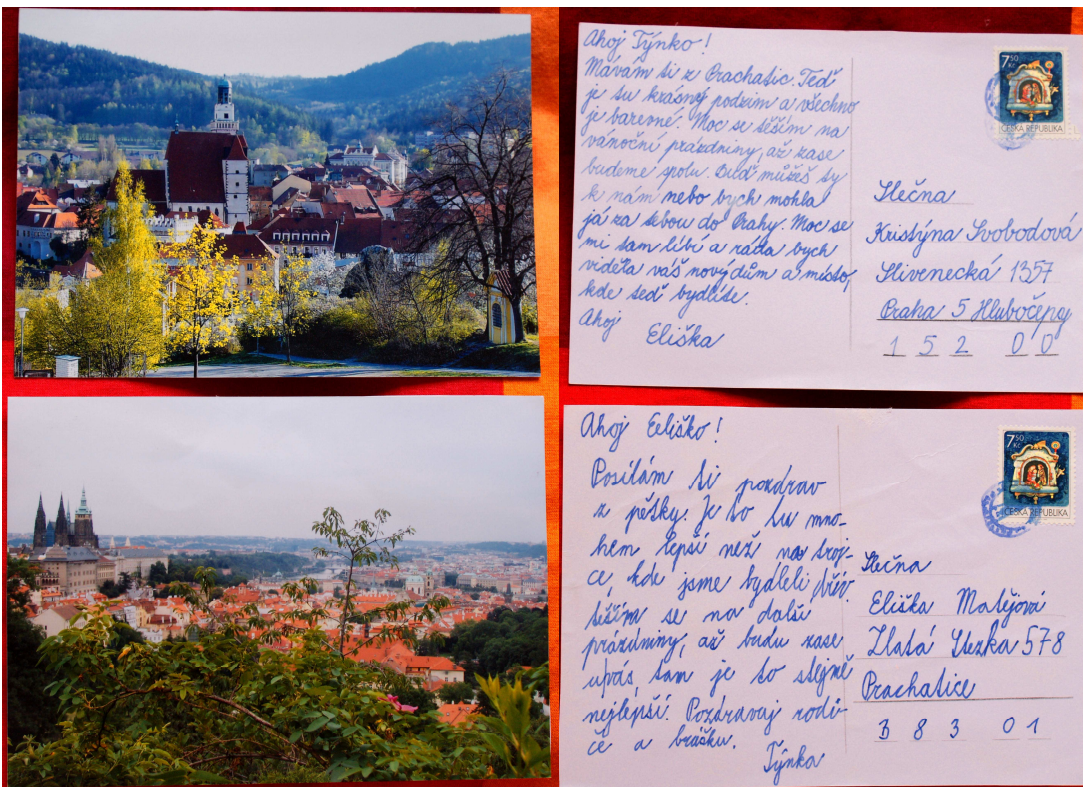 Ahoj Týnko!
Mávám ti z Prachatic. Teď
je tu krásný podzim a všechno
je barevné. Moc se těším na
vánoční prázdniny, až zase
budeme spolu. Buď můžeš ty
k nám nebo bych mohla
já za tebou do Prahy. Moc se
mi tam líbí a ráda bych
viděla váš nový dům a místo,
kde teď bydlíte.
Ahoj
Eliška
7,50
Kč
ČESKÁ REPUBLIKA
Slečna
Kristýna Svobodová
Slivenecká 1357
Praha 5 Hlubočepy
152 00
Ahoj Eeliško!
Posílám ti pozdrav
z pětky. Je to tu mno-
hem lepší než na troj-
ce, kde jsme bydleli dřív.
těším se na další
prázdniny, až budu zase
u vás, tam je to stejně
nejlepší. Pozdravuj rodi-
če a brášku.
Týnka
7,50
Kč
ČESKÁ REPUBLIKA
Slečna
Eliška Matějová
Zlatá Stezka 578
Prachatice
383 01